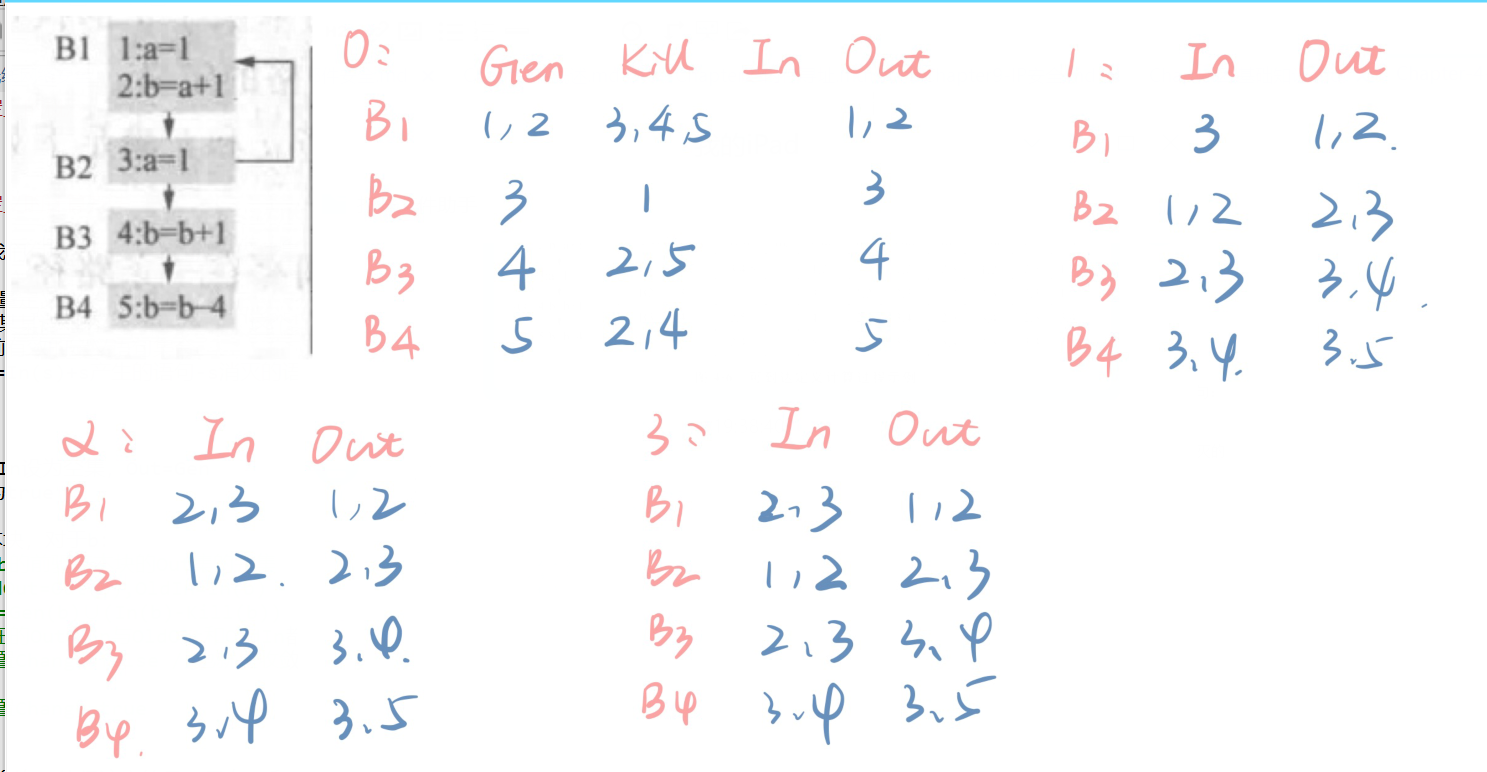 B1 1:a=1
2:b=a+1
B2 3:a=1
B3 4:b=b+1
B4 5:b=b-4
0: Gen Kill In Out
B1 1,2 3,4,5 1,2
B2 3 1 3
B3 4 2,5 4
B4 5 2,4 5
1: In Out
B1 3 1,2.
B2 1,2 2,3
B3 2,3 3,4.
B4 3,4. 3.5
2: In Out
B1 2,3 1,2
B2 1,2. 2,3
B3 2,3 3.4.
B4. 3,4 3.5
3: In Out
B1 2,3 1,2
B2 1,2 2,3
B3 2,3 3,4
B4 3,4 3.5